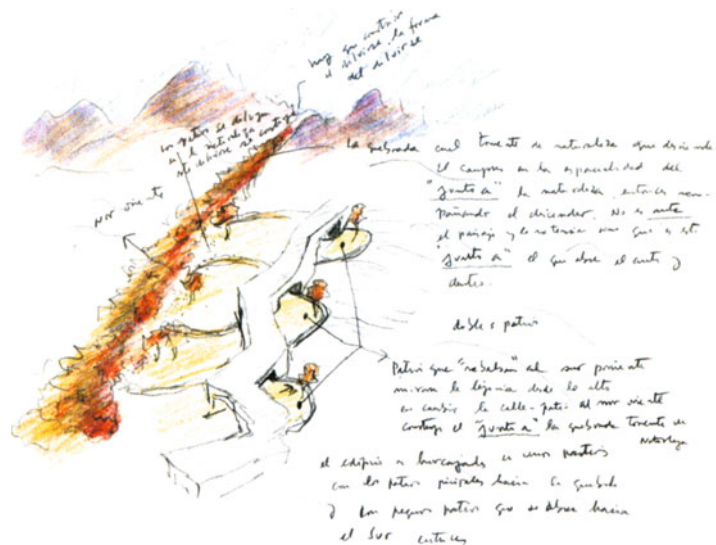 hay que construir
el diluirse la forma
del diluirse
los patios se diluyen
en la naturaleza
nor oriente
La quebrada cual torrente de naturaleza que desciende
El campus en la espacialidad del
"junto a" la naturaleza, entonces acom-
pañando el descender. No es ante
el paisaje y lo extenso sino que es este
"junto a" el que abre el ante y
dobles patios
Patios que "rebalsan" al sur poniente
miran la lejanía desde lo alto
en cambio la calle-patio al nor oriente
construye el "junto a" la quebrada torrente de
Naturaleza
el edificio a horcajadas en unos patios
con los patios principales hacia la quebrada
y los pequeños patios que se abren hacia
el Sur